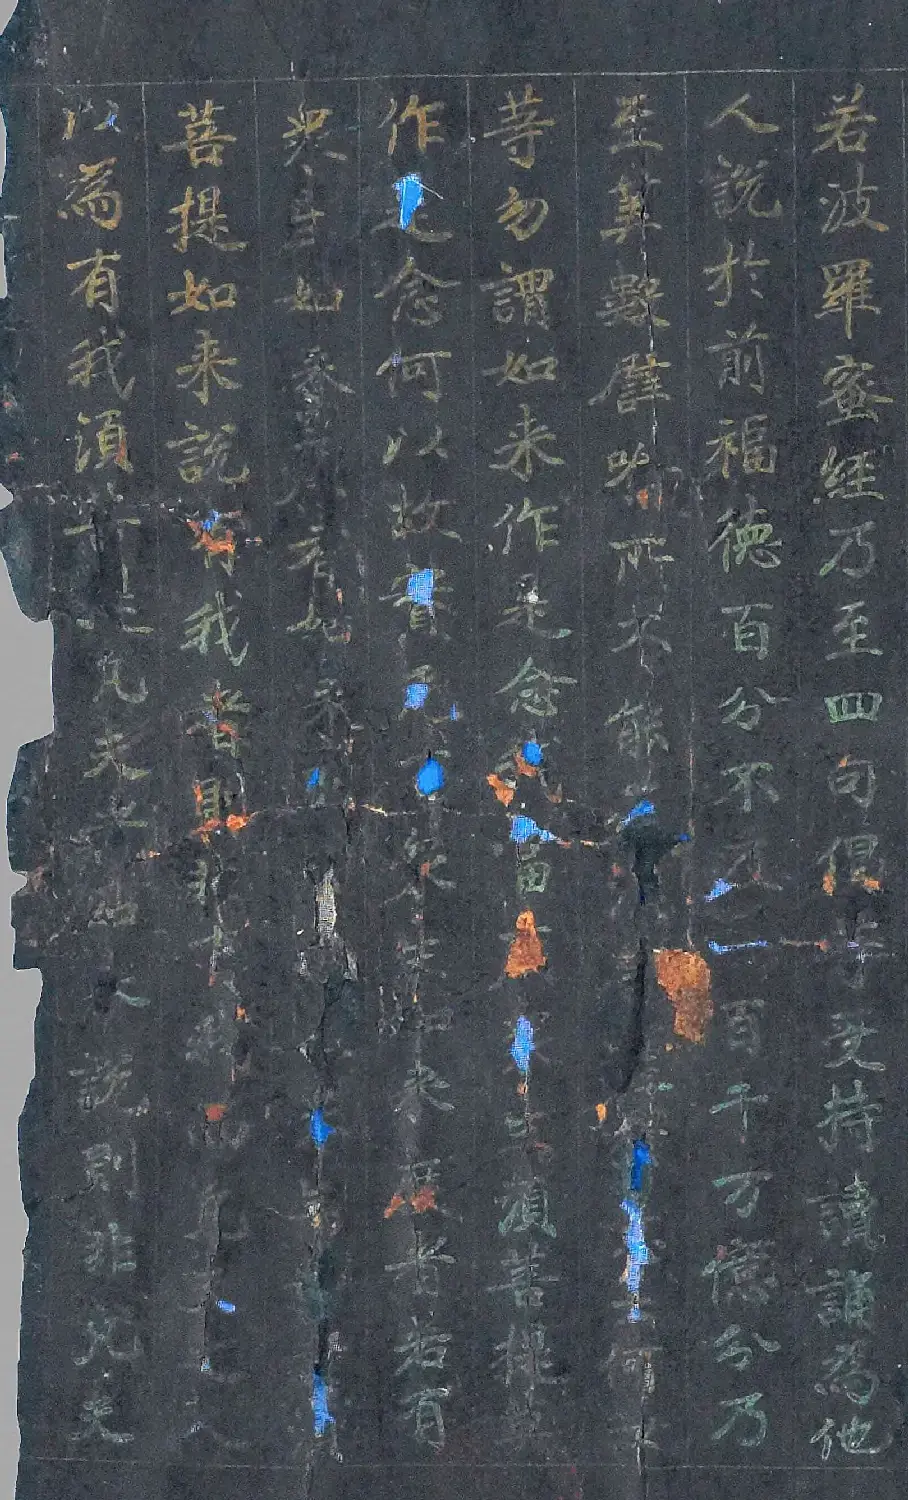 若波羅蜜經乃至四句偈等受持讀誦為他
人說於前福德百分不及一百千万億分乃
至筭數譬喻所不能云何汝
等勿謂如来作是念我當生湏菩提莫
作是念何以故實无有衆生如来度者若有
衆生如来度者如来
菩提如来說有我者則非有我而凡夫之人
以為有我湏菩提凡夫者如来說則非凡夫